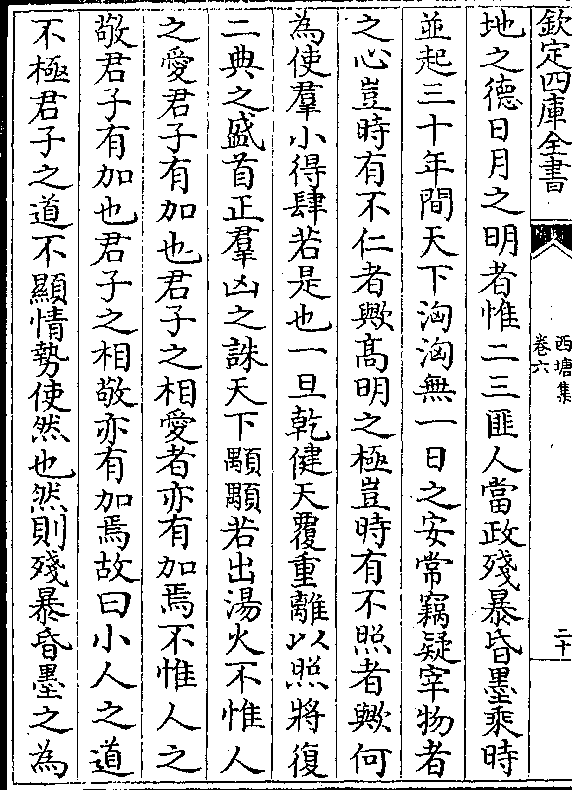 欽定四庫全書
西塘集
卷六
二十
地之德日月之明者惟二三匪人當政殘暴昏墨乘時
並起三十年間天下洶洶無一日之安常竊疑宰物者
之心豈時有不仁者歟髙明之極豈時有不照者歟何
為使羣小得肆若是也一旦乾健天覆重離以照將復
二典之盛首正羣凶之誅天下顒顒若出湯火不惟人
之愛君子有加也君子之相愛者亦有加焉不惟人之
敬君子有加也君子之相敬亦有加焉故曰小人之道
不極君子之道不顯情勢使然也然則殘暴昏墨之為